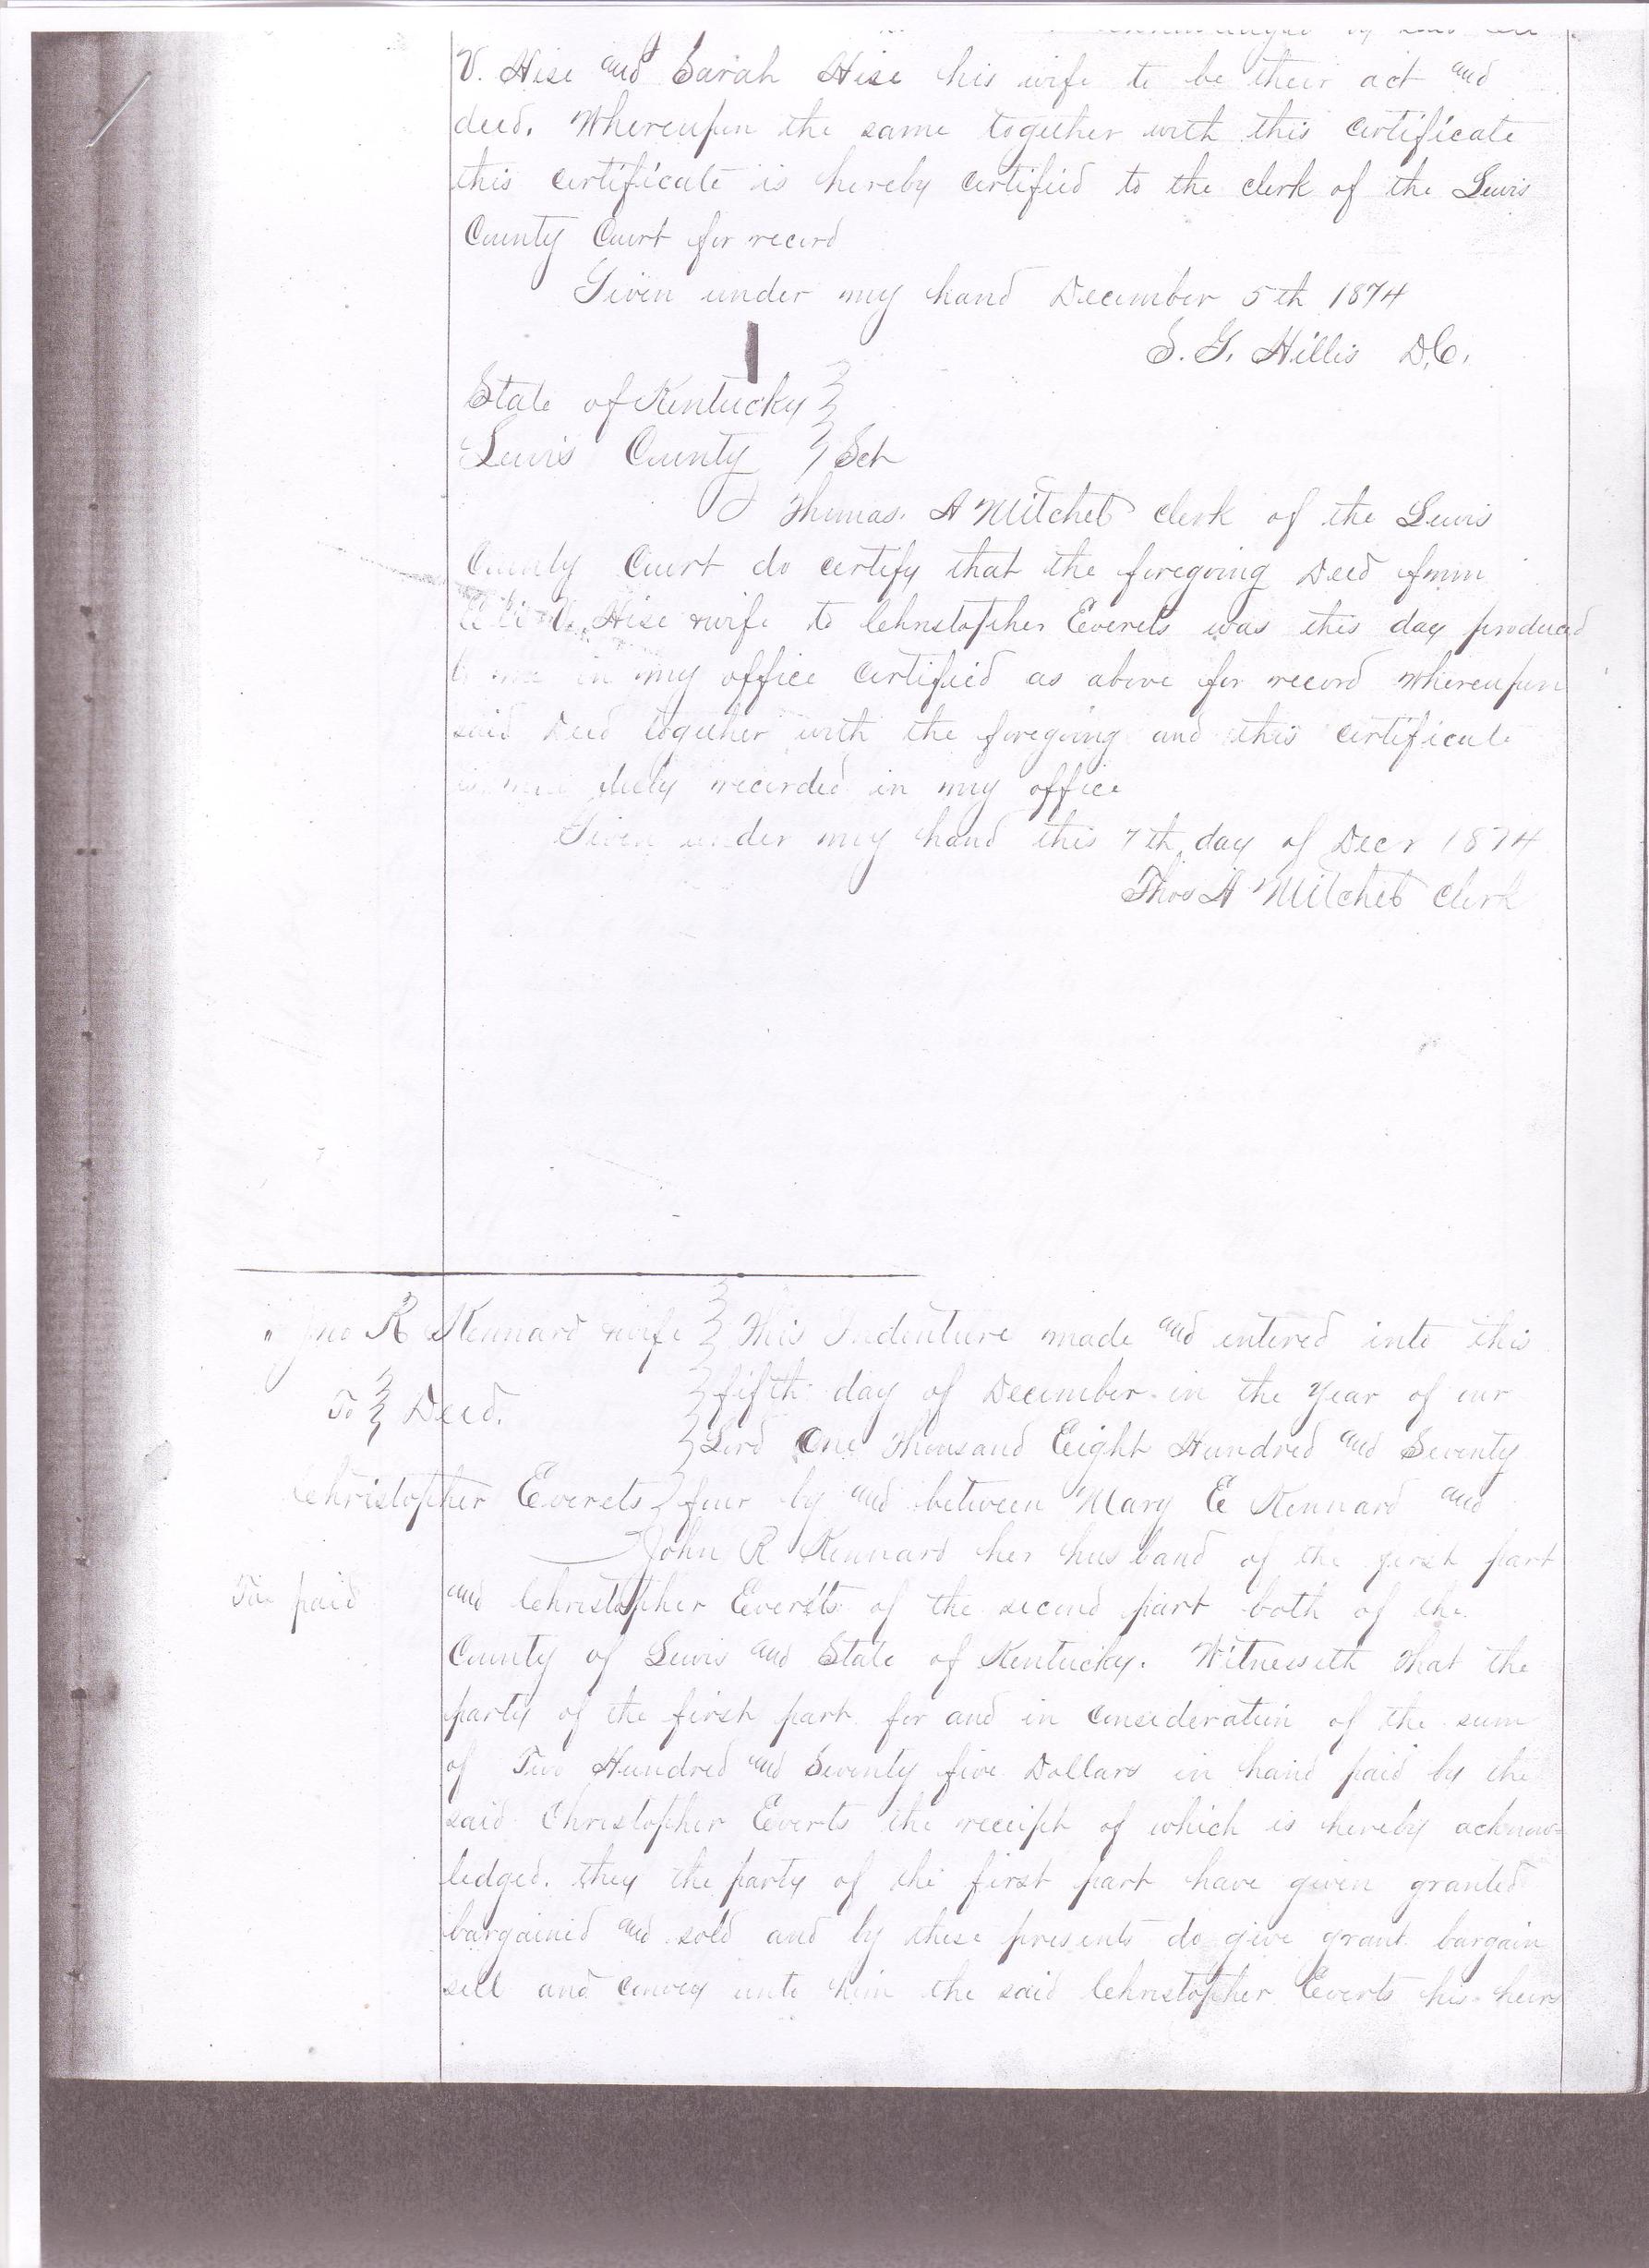 acknowledged by
V. Hise and Sarah Hise his wife to be their act and
deed. Whereupon the same together with this certificate
this certificate is hereby certified to the clerk of the Lewis
County Court for record
Given under my hand December 5th 1874
S. G. Hillis D.C.
State of Kentucky }
Lewis County } Sct
I Thomas. A Mitchel clerk of the Lewis
County Court do certify that the foregoing Deed from
V. Hise & wife to Christopher Everets was this day produced
to me in my office certified as above for record whereupon
said Deed together with the foregoing and this certificate
duly recorded in my office
Given under my hand this 7th day of Decr 1874
Thos A Mitchel Clerk
Jno R Kennard & wife } This Indenture made and entered into this
To } Deed. } fifth day of December in the Year of our
} Lord One Thousand Eight Hundred and Seventy
Christopher Everets } four by and between Mary E Kennard and
John R Kennard her husband of the first part
Tax paid
and Christopher Everets of the second part both of the
County of Lewis and State of Kentucky. Witnesseth that the
party of the first part for and in consideration of the sum
of Two Hundred and Seventy five Dollars in hand paid by the
said Christopher Everts the receipt of which is hereby acknow=
ledged. they the party of the first part have given granted
bargained and sold and by these presents do give grant bargain
sell and convey unto him the said Christopher Everts his heirs